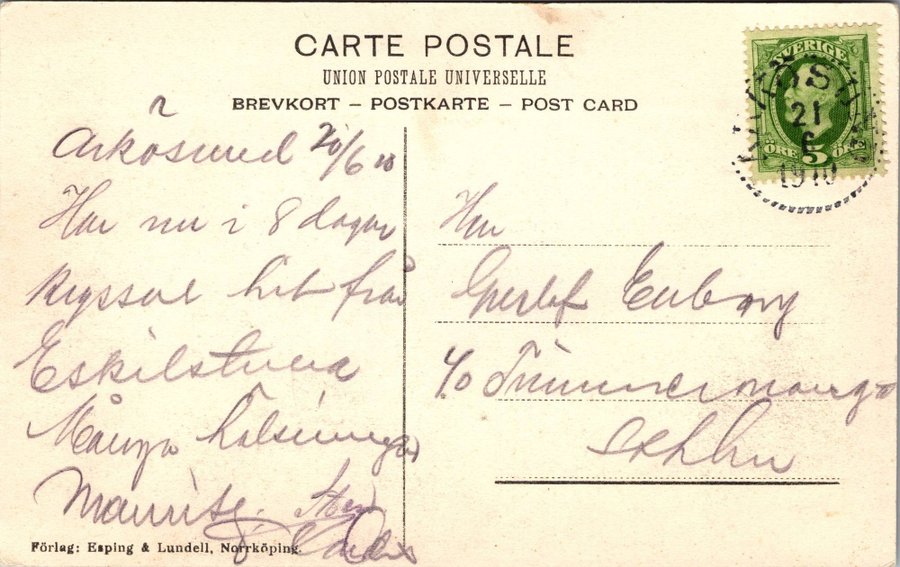 CARTE POSTALE
UNION POSTALE UNIVERSELLE
BREVKORT – POSTKARTE – POST CARD
SVERIGE
5
ÖRE
21
6
1910
Arkösund 20/6 10
Har nu i 8 dagar
hit från
Eskilstuna
Många hälsningar
Maurits.
Herr
c/o Timmermans
Sthlm
Förlag: Esping & Lundell, Norrköping.